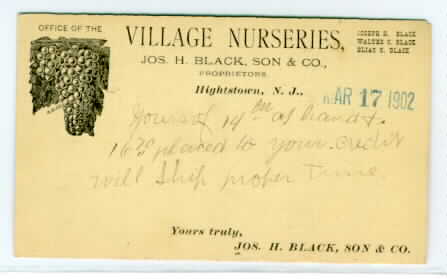 OFFICE OF THE
VILLAGE NURSERIES,
JOS. H. BLACK, SON & CO.,
PROPRIETORS.
JOSEPH H. BLACK
WALTER C. BLACK
ELIAS S. BLACK
Hightstown, N. J.,
MAR 17 1902
Yours of 14th at hand &
placed to your credit
will ship proper time.
Yours truly,
JOS. H. BLACK, SON & CO.